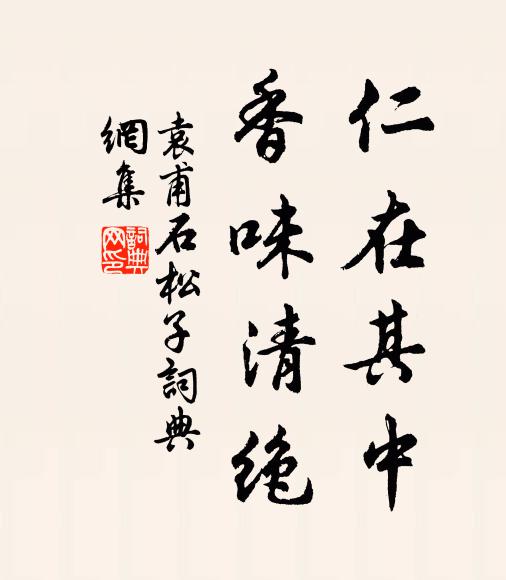 仁在其中
香味清绝
袁甫石松子詞典
網集
詞典
网印